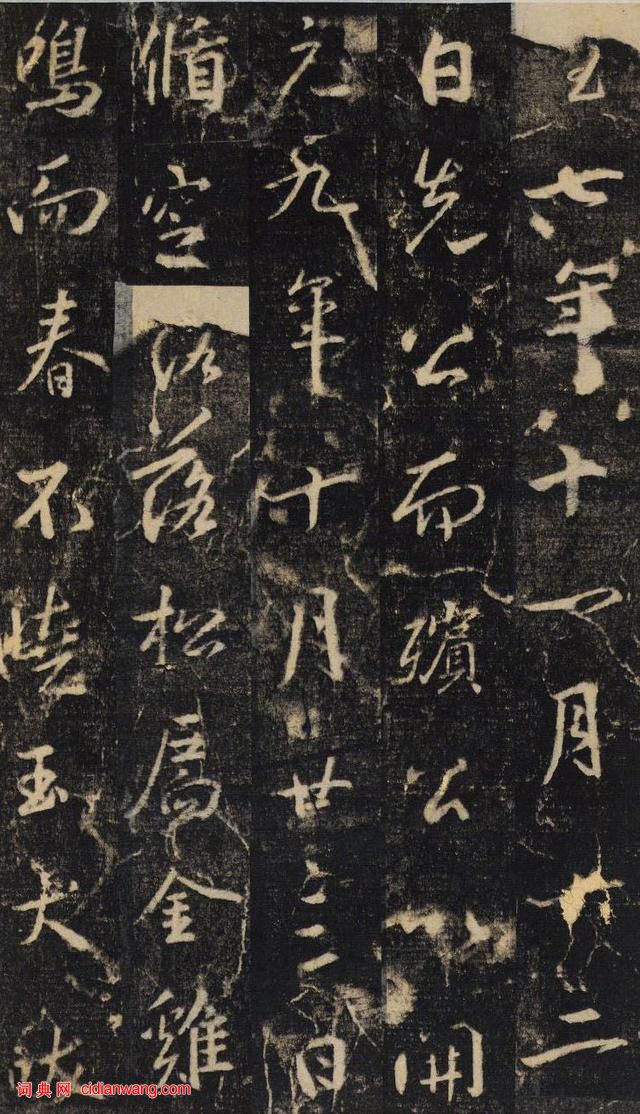 七年十一月二
日先公而殯公以開
元九年十月廿三日
脩空落松為金雞
鳴而春不曉玉犬吠
词典网 cidianwang.com